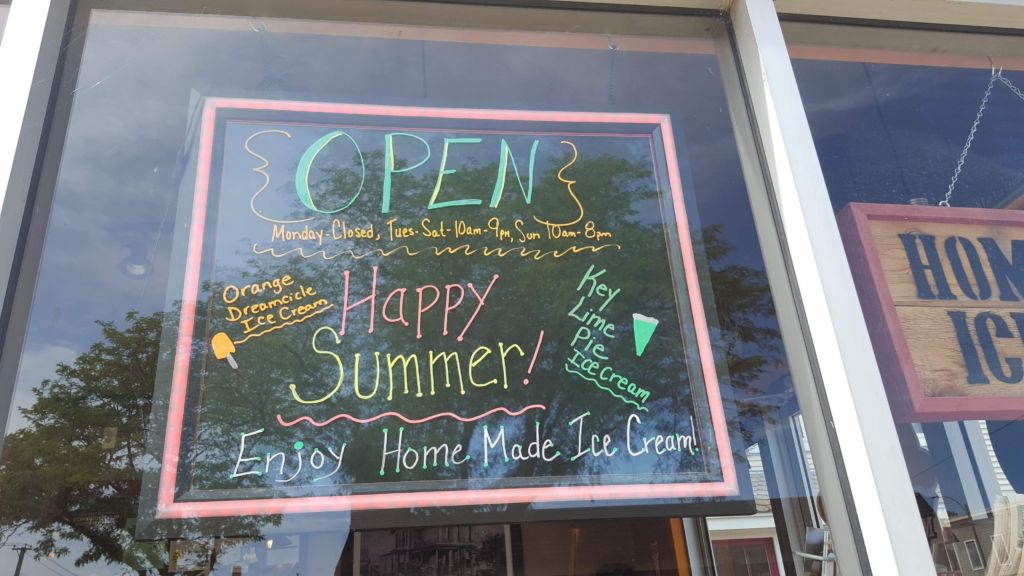 OPEN
Monday-Closed, Tues-Sat-10am-9pm, Sun 10am-8pm
Orange
Dreamcicle
Ice Cream
Happy
Summer!
Key
Lime
Pie
Ice Cream
Enjoy Home Made Ice Cream!
HOM
IC